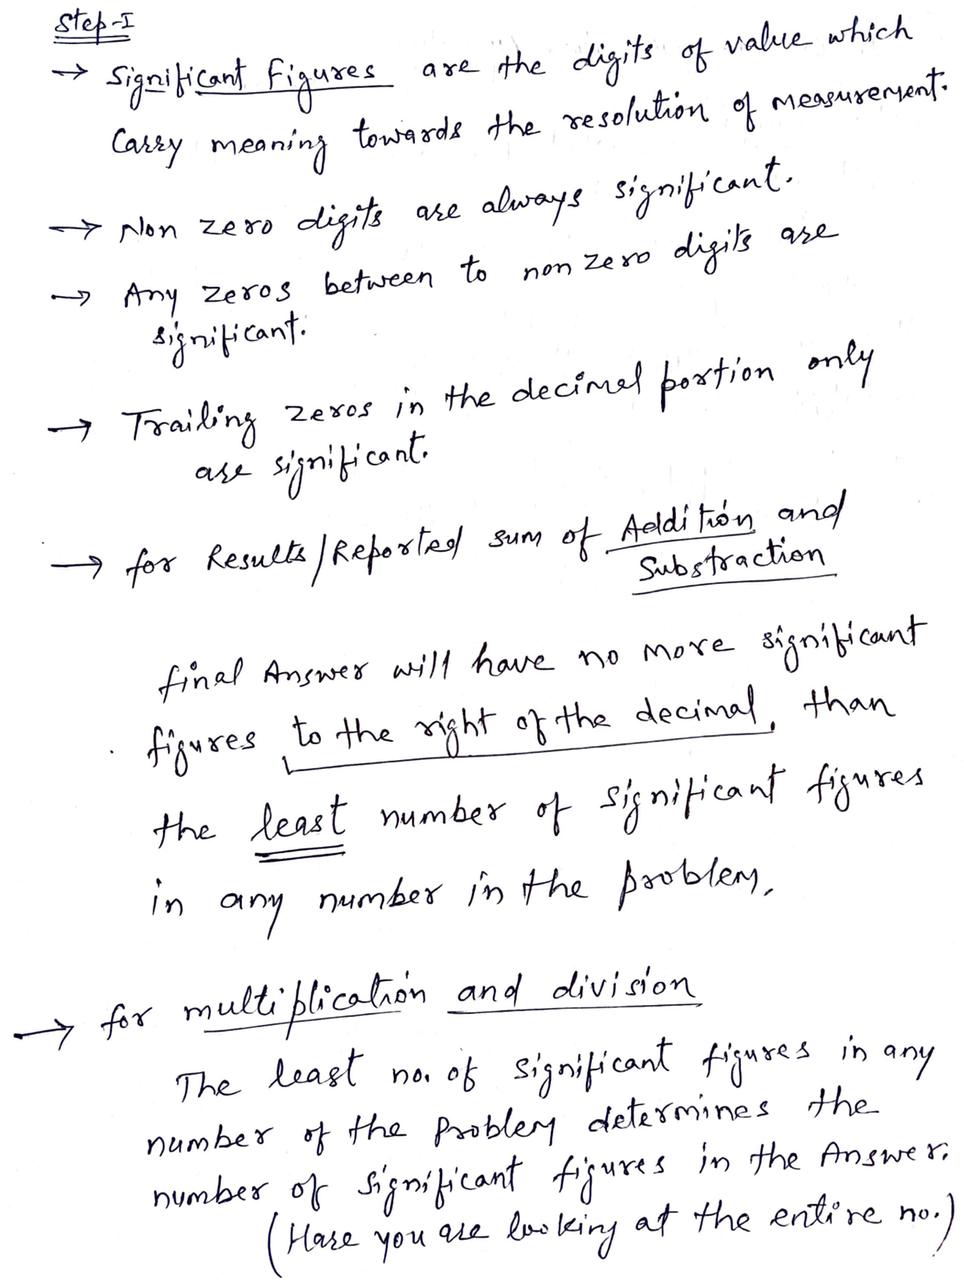 Step-I
→ Significant figures are the digits of value which
Carry meaning towards the resolution of measurement.
→ Non zero digits are always significant.
→ Any zeros between to non zero digits are
significant.
→ Trailing zeros in the decimal portion only
are significant.
→ for Results/Reported sum of Addition and
Substraction
final Answer will have no more significant
figures to the right of the decimal, than
the least number of significant figures
in any number in the problem.
→ for multiplication and division
The least no. of significant figures in any
number of the problem determines the
number of significant figures in the Answer.
(Hare you are looking at the entire no.)